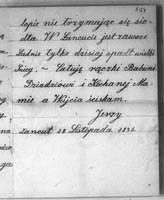 lepić nie trzymając się sio-
dła. W Łańcucie jest zawsze
ładnie tylko dzisiaj spadł wielki
śnieg. ~ Całuję rączki Babuni
Dziadziowi i Kochanej Ma-
mie a Wujcia ściskam.
Jerzy
Łancut 28 Listopada 18